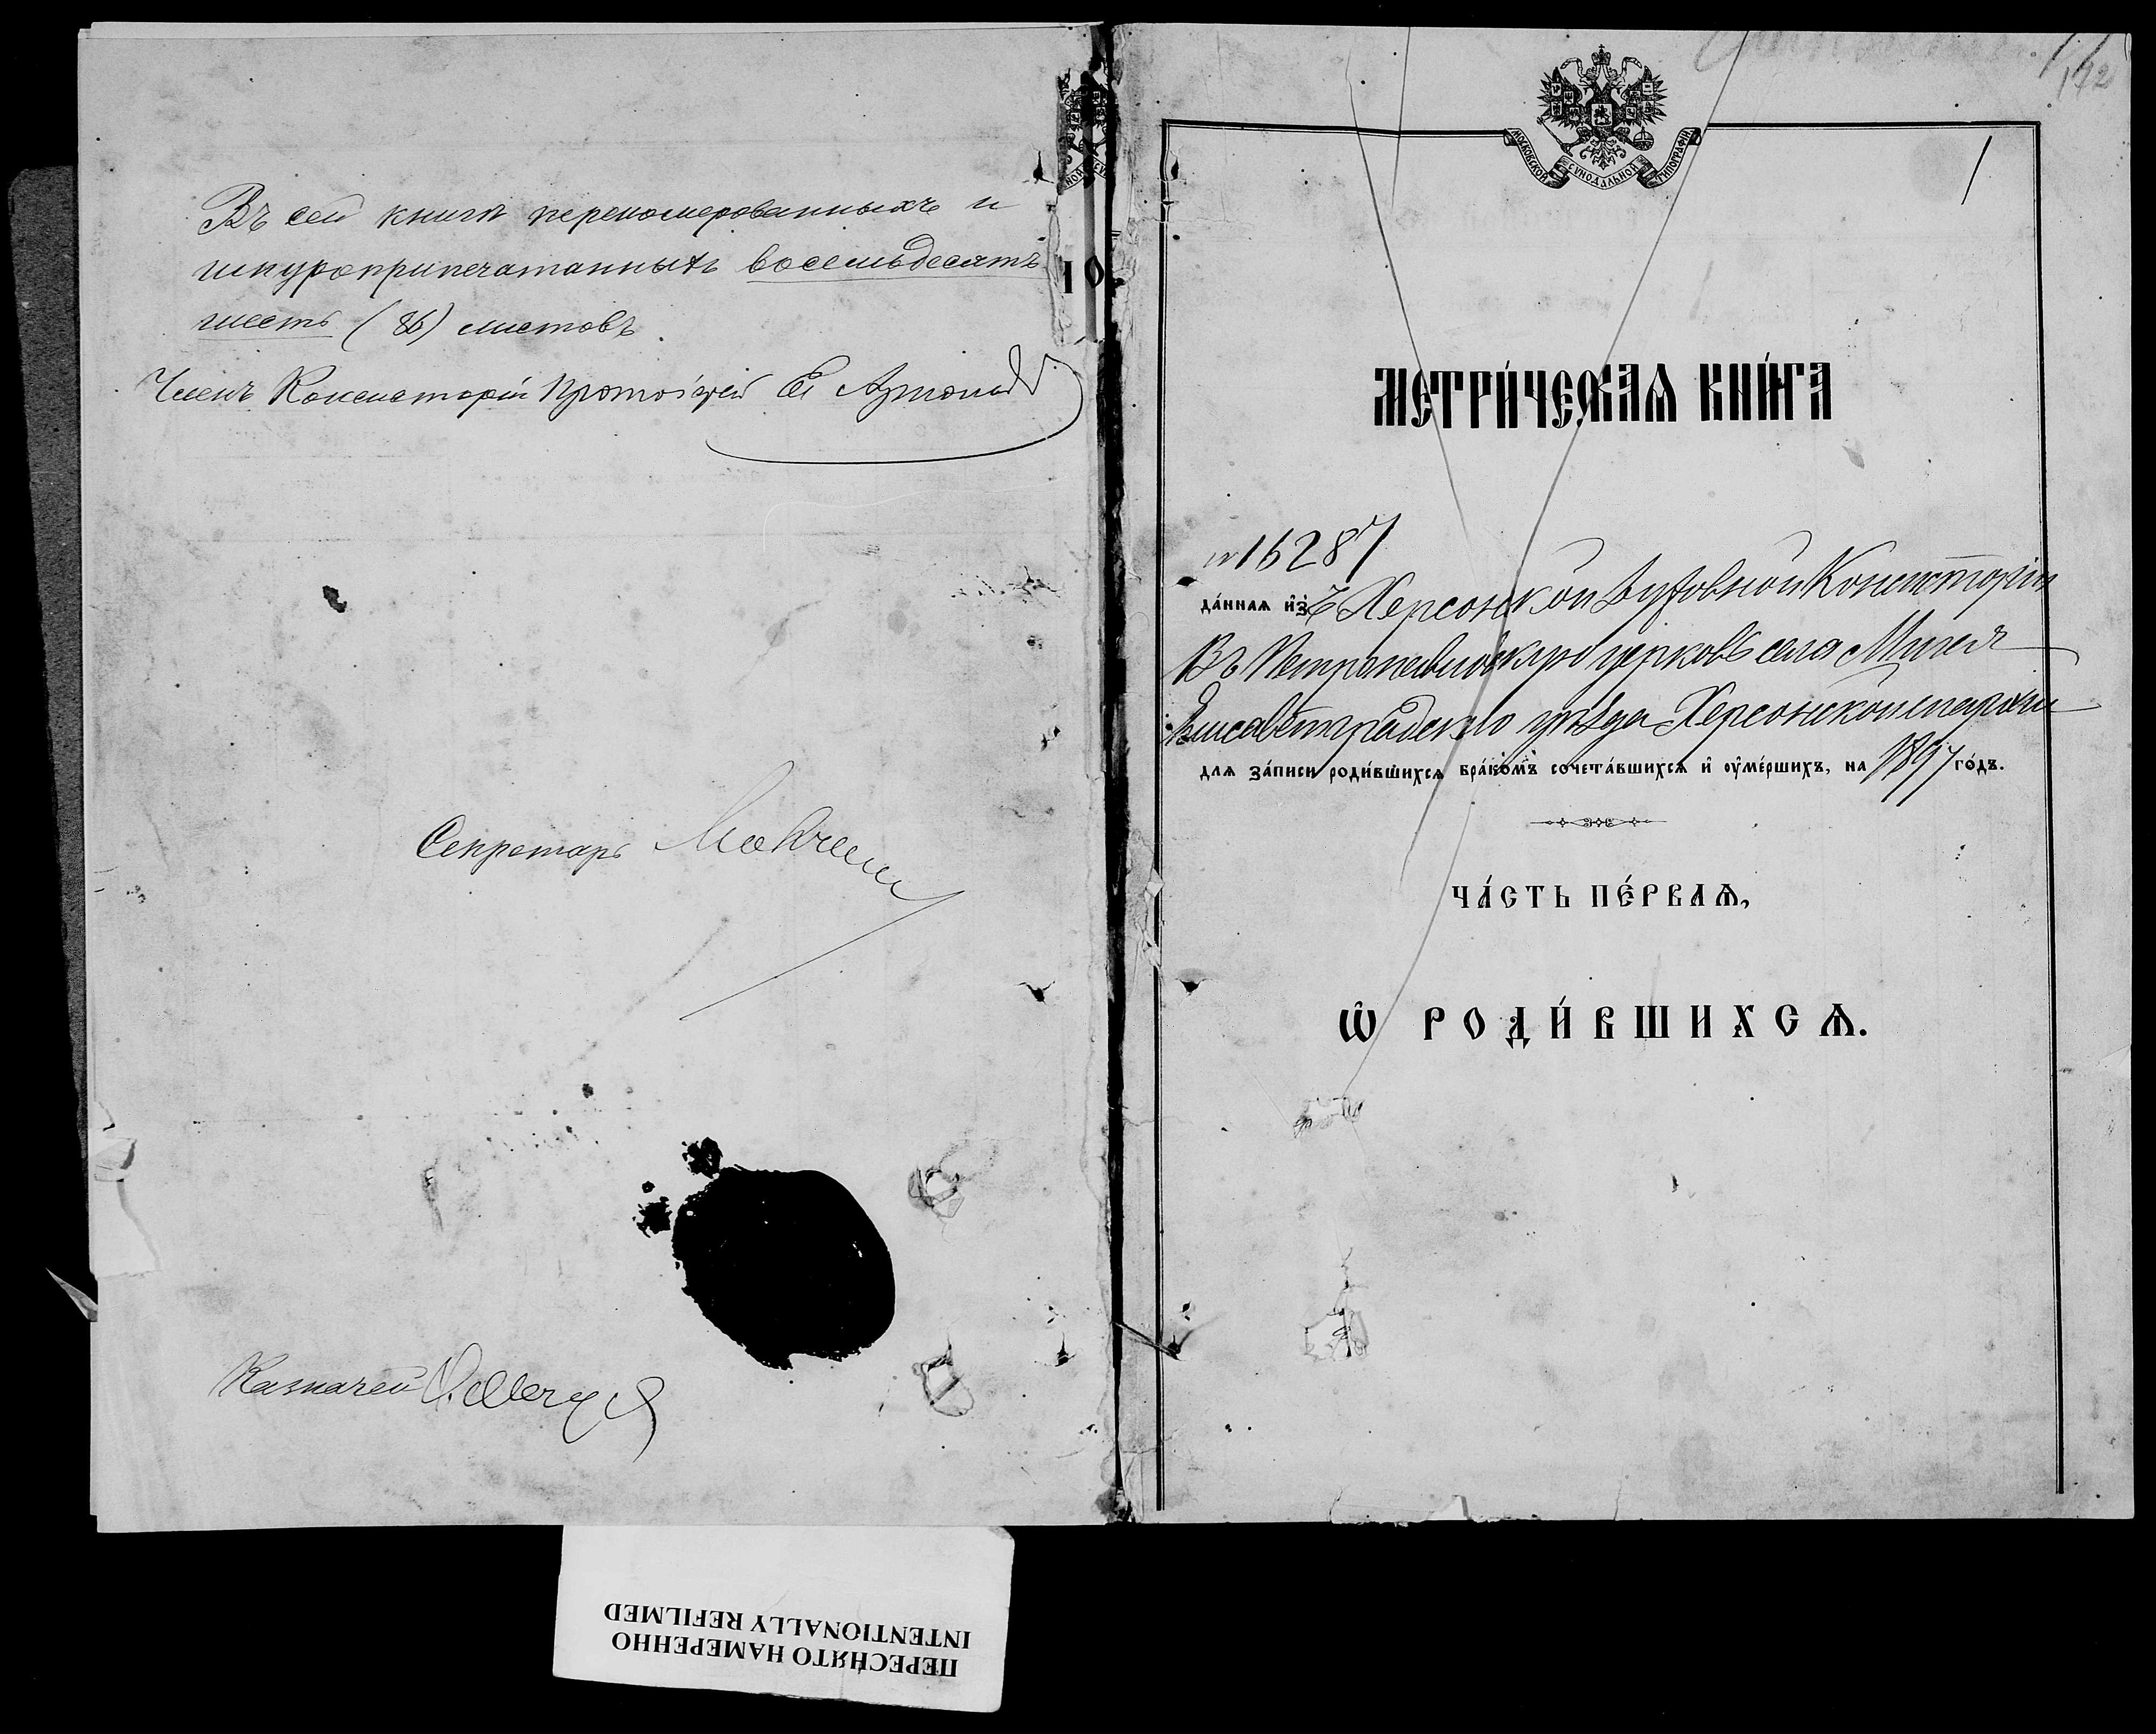 Въ сей книгѣ перенomерованныхъ и
шнуроприпечатанныхъ восемьдесятъ
шесть (86) листовъ.
Членъ Консисторіи Протоіерей
Секретарь
Казначей
МОСКОВСКОЙ СѴНОДАЛЬНОЙ ТИПОГРАФІИ
1
МЕТРИ́ЧЕСКАѦ КНИ́ГА
№ 16287
да́ннаѧ и҆з̾ Херсонской Духовной Консисторіи
Въ Петропавловскую церковь села Мигея
Елисаветградскаго уѣзда Херсонской епархіи
длѧ за́писи роди́вшихсѧ бра́комъ сочета́вшихсѧ и҆ ᲂу҆ме́ршихъ, на 1897 го́дъ.
ЧА́СТЬ ПЕ́РВАѦ,
Ѡ҆ РОДИ́ВШИХСѦ.
ПЕРЕСНЯТО НАМЕРЕННО
INTENTIONALLY REFILMED